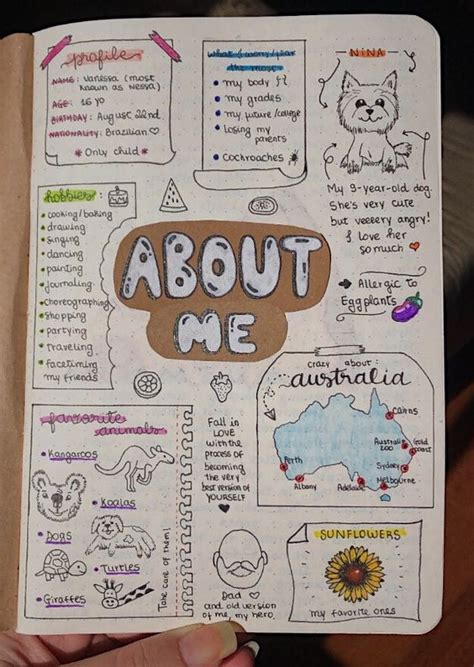 profile
NAME: Vanessa (most
known as Nessa)
AGE: 16 yo
BIRTHDAY: August 22nd
NATIONALITY: Brazilian
* Only child *
What I worry/fear
the most
my body
my grades
my future/college
losing my
parents
cockroaches
NINA
My 9-year-old dog.
She's very cute
but veeeery angry!
I love her
so much
Allergic to
Eggplants
hobbies:
cooking/baking
drawing
singing
dancing
painting
journaling
choreographing
shopping
partying
traveling
facetiming
my friends
ABOUT
ME
crazy about:
australia
Cairns
Australia
zoo
Gold
coast
Perth
Sydney
Albany
Adelaide
Melbourne
favorite
animals
Kangaroos
Koalas
Dogs
Turtles
Giraffes
Take care of them!
Fall in
LOVE
with the
process of
becoming
the very
best version of
YOURSELF
Dad
and old version
of me, my hero.
SUNFLOWERS
my favorite ones